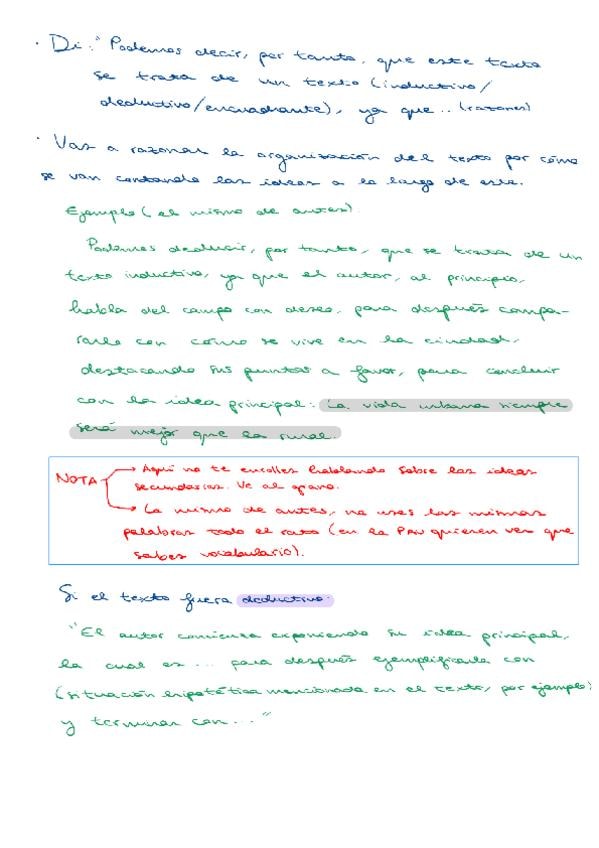 · Di: "Podemos decir, por tanto, que este texto
se trata de un texto (inductivo/
deductivo/encuadrante), ya que... (razones)
· Vas a razonar la organización del texto por cómo
se van contando las ideas a lo largo de este.
Ejemplo (el mismo de antes).
Podemos deducir, por tanto, que se trata de un
texto inductivo, ya que el autor, al principio,
habla del campo con deseo, para después compa-
rarlo con cómo se vive en la ciudad,
destacando sus puntos a favor, para concluir
con la idea principal: la vida urbana siempre
será mejor que la rural.
NOTA → Aquí no te enrolles hablando sobre las ideas
secundarias. Ve al grano.
→ Lo mismo de antes, no uses las mismas
palabras todo el rato (en la PAU quieren ver que
sabes vocabulario).
Si el texto fuera deductivo:
"El autor comienza exponiendo su idea principal,
la cual es ... para después ejemplificarla con
(situación hipotética mencionada en el texto, por ejemplo)
y terminar con..."